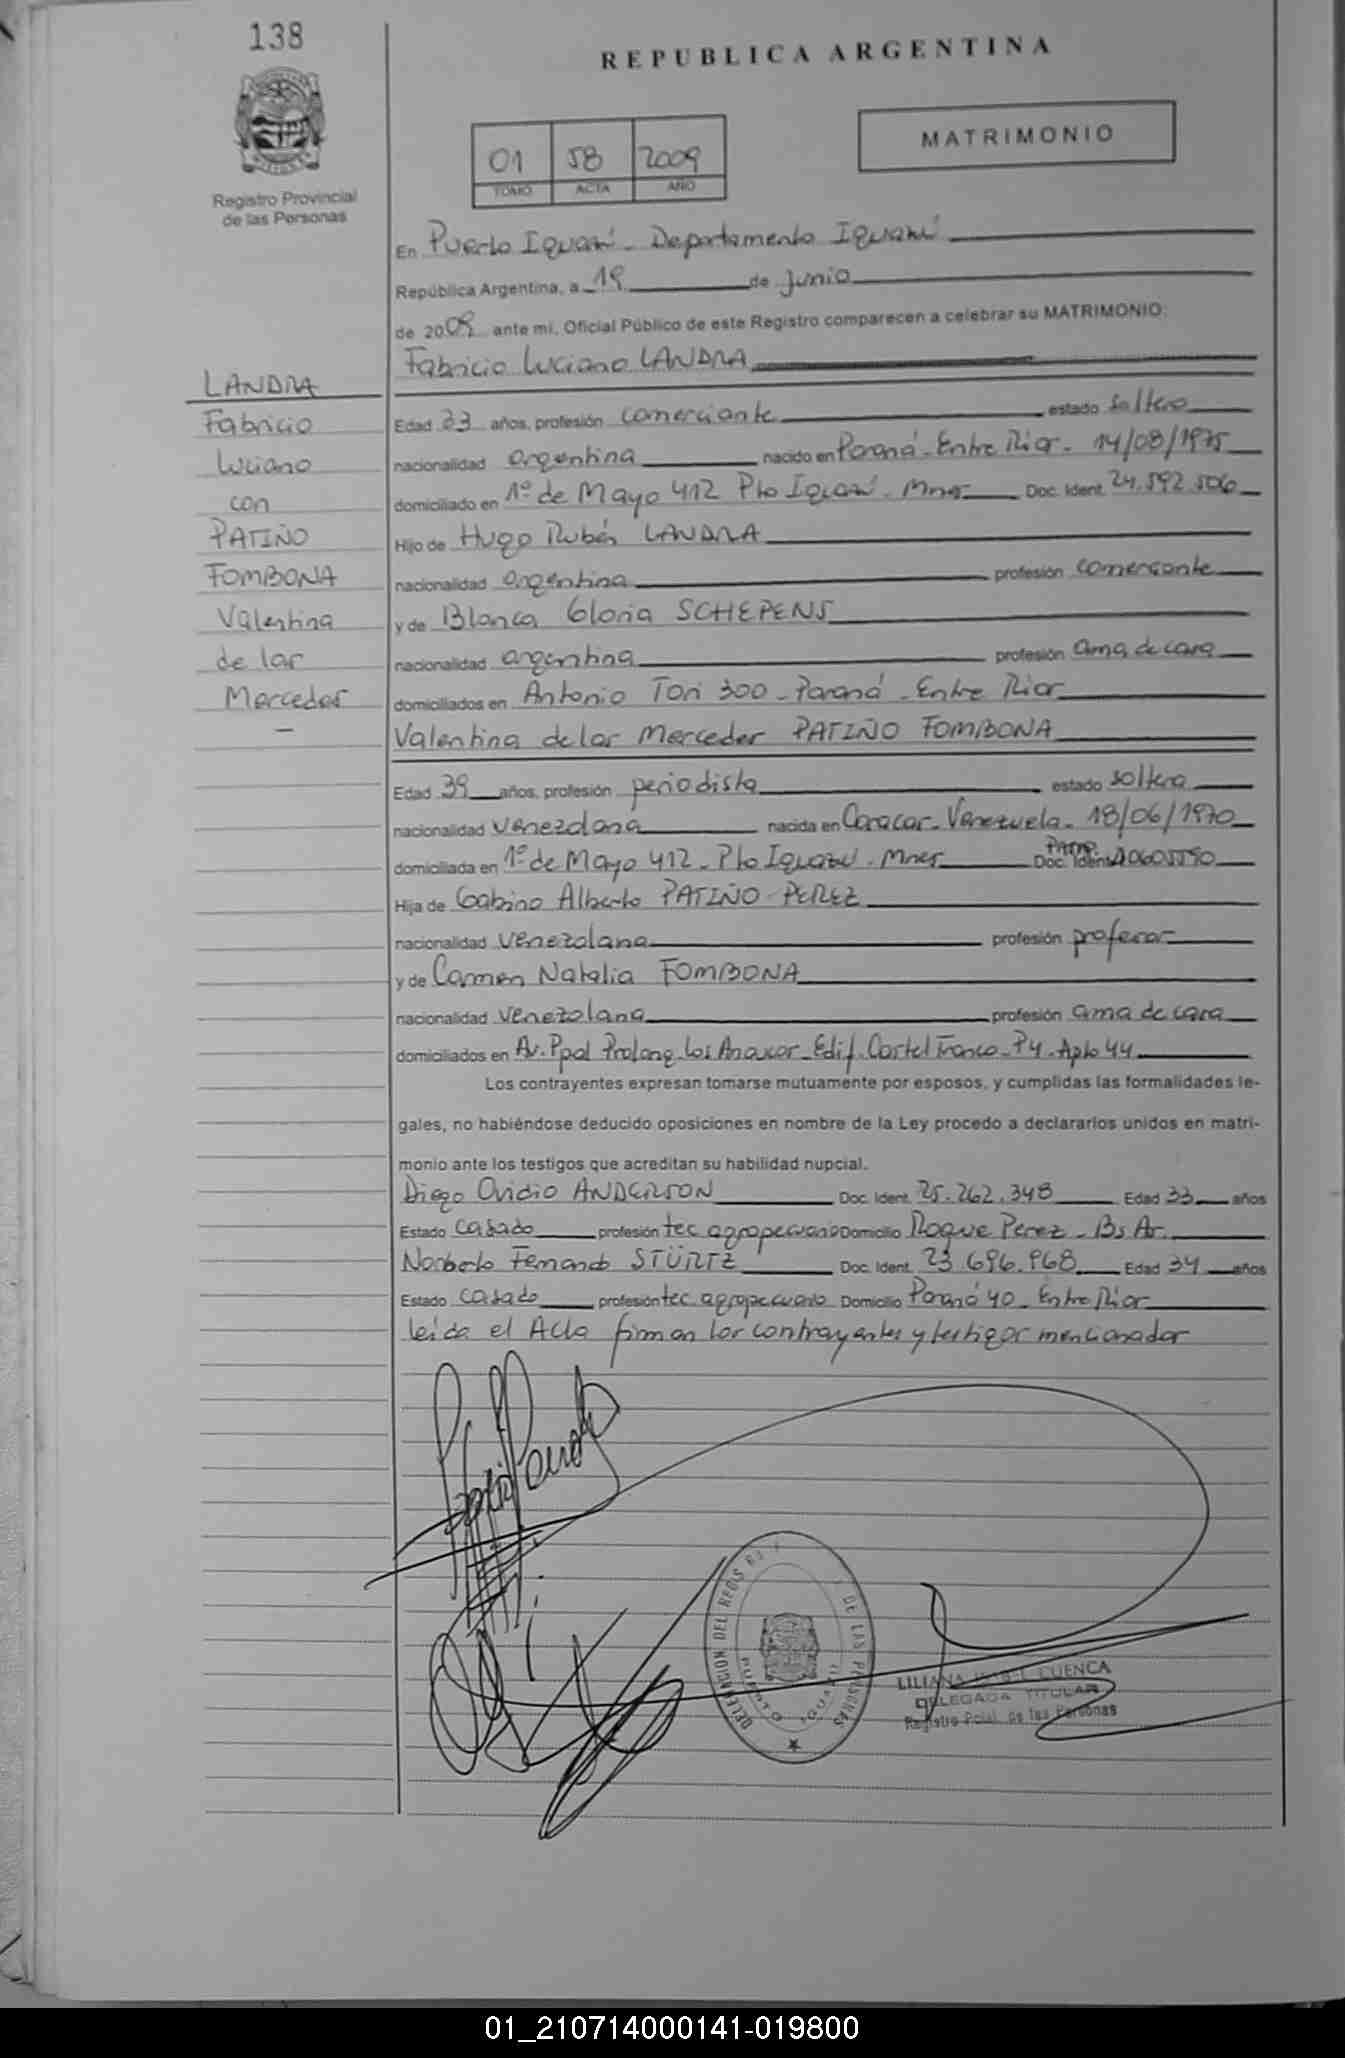 138
REPUBLICA ARGENTINA
MATRIMONIO
01 58 2009
TOMO ACTA AÑO
Registro Provincial
de las Personas
En Puerto Iguazú - Departamento Iguazú
República Argentina, a 19 de junio
de 2009 ante mi, Oficial Público de este Registro comparecen a celebrar su MATRIMONIO:
Fabricio Luciano LANDRA
LANDRA
Fabricio
Luciano
con
PATIÑO
FOMBONA
Valentina
de las
Mercedes
Edad 33 años, profesión comerciante estado soltero
nacionalidad argentina nacido en Paraná - Entre Rios - 14/08/1975
domiciliado en 1º de Mayo 412 Pto Iguazú - Mnes Doc. Ident. 24.592.506
Hijo de Hugo Rubén LANDRA
nacionalidad argentina profesión comerciante
y de Blanca Gloria SCHEPENS
nacionalidad argentina profesión ama de casa
domiciliados en Antonio Tori 300 - Paraná - Entre Rios
Valentina de las Mercedes PATIÑO FOMBONA
Edad 39 años, profesión periodista estado soltera
nacionalidad venezolana nacida en Caracas - Venezuela - 18/06/1970
domiciliada en 1º de Mayo 412 - Pto Iguazú - Mnes Doc. Ident.
Hija de Gabino Alberto PATIÑO - PEREZ
nacionalidad venezolana profesión profesor
y de Carmen Natalia FOMBONA
nacionalidad venezolana profesión ama de casa
domiciliados en Av. Ppal Prolong. Los Anaucos - Edif. Castel Franco - P4 - Apto 44
Los contrayentes expresan tomarse mutuamente por esposos, y cumplidas las formalidades le-
gales, no habiéndose deducido oposiciones en nombre de la Ley procedo a declararlos unidos en matri-
monio ante los testigos que acreditan su habilidad nupcial.
Diego Ovidio ANDERSON Doc. Ident. 25.262.348 Edad 33 años
Estado casado profesión tec agropecuario Domicilio Roque Perez - Bs As.
Norberto Fernando STÜRTZ Doc. Ident. 23.696.968 Edad 34 años
Estado casado profesión tec. agropecuario Domicilio Paraná 40 - Entre Rios
leida el Acta firman los contrayentes y testigos mencionados
DELEGACION DEL REGISTRO DE LAS PERSONAS
PUERTO IGUAZU
LILIANA ISABEL CUENCA
DELEGADA TITULAR
Registro Pcial. de las Personas
01_210714000141-019800